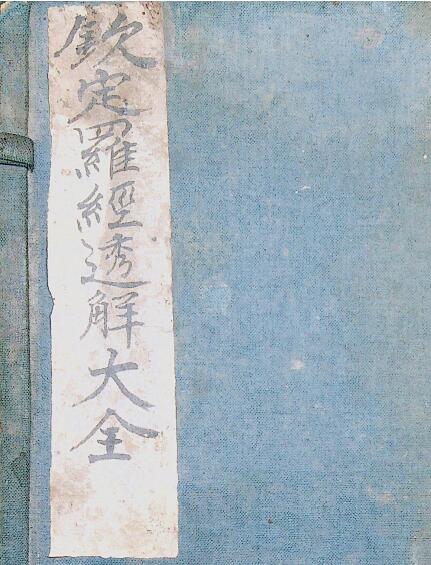 欽定羅經透解大全